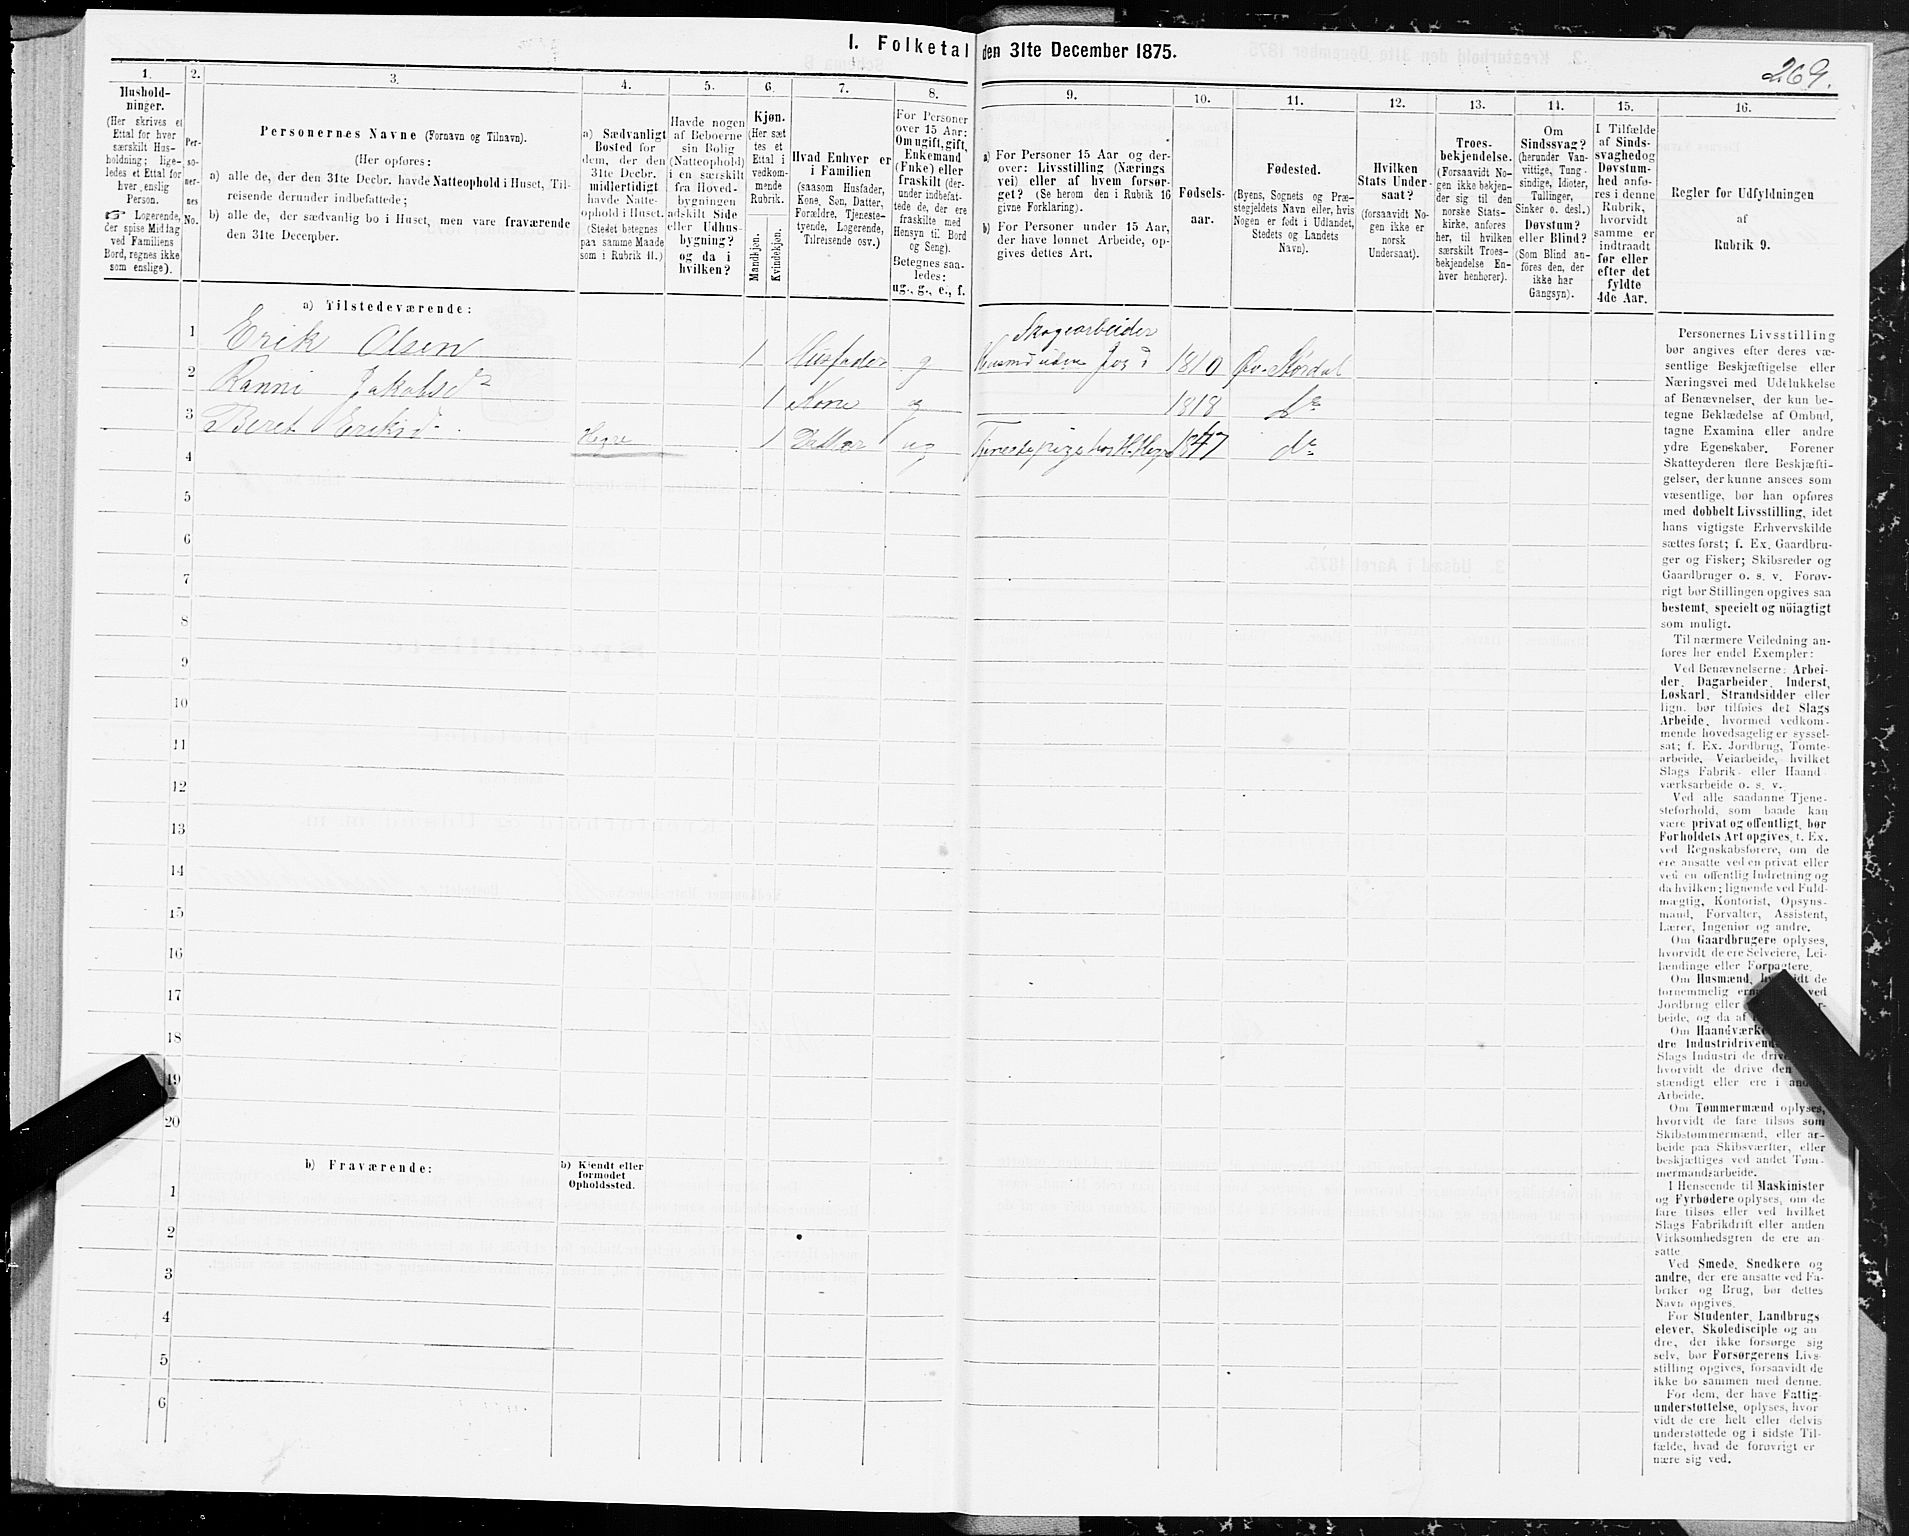 I. Folketal den 31te December 1875.
269.
1.
Hushold-
ninger.
(Her skrives et
Ettal for hver
særskilt Hus-
holdning; lige-
ledes et Ettal for
hver enslig
Person.
☞ Logerende,
der spise Middag
ved Familiens
Bord, regnes ikke
som enslige).
2.
Per-
so-
ner-
nes
No.
3.
Personernes Navne (Fornavn og Tilnavn).
(Her opføres:
a) alle de, der den 31te Decbr. havde Natteophold i Huset, Til-
reisende derunder indbefattede;
b) alle de, der sædvanlig bo i Huset, men vare fraværende
den 31te December.
4.
a) Sædvanligt
Bosted for
dem, der den
31te Decbr.
midlertidigt
havde Natte-
ophold i Huset.
(Stedet betegnes
paa samme Maade
som i Rubrik 11.)
5.
Havde nogen
af Beboerne
sin Bolig
(Natteophold)
i en særskilt
fra Hoved-
bygningen
adskilt Side
eller Udhus-
bygning?
og da i
hvilken?
6.
Kjøn.
(Her sæt
tes et
Ettal i
vedkom-
mende
Rubrik.
Mandkjøn.
Kvindekjøn.
7.
Hvad Enhver er
i Familien
(saasom Husfader,
Kone, Søn, Datter,
Forældre, Tjeneste-
tyende, Logerende,
Tilreisende osv.)
8.
For Personer
over 15 Aar:
Om ugift, gift,
Enkemand
(Enke) eller
fraskilt (der-
under indbefat-
tede de, der ere
fraskilte med
Hensyn til Bord
og Seng).
Betegnes saa-
ledes:
ug., g., e., f.
9.
a) For Personer 15 Aar og der-
over: Livsstilling (Nærings
vei) eller af hvem forsør-
get? (Se herom den i Rubrik 16
givne Forklaring).
b) For Personer under 15 Aar,
der have lønnet Arbeide, op-
gives dettes Art.
10.
Fødsels-
aar.
11.
Fødested.
(Byens, Sognets og Præ-
stegjeldets Navn eller, hvis
Nogen er født i Udlandet,
Stedets og Landets
Navn).
12.
Hvilken
Stats Under-
saat?
(forsaavidt No-
gen ikke er
norsk
Undersaat).
13.
Troes-
bekjendelse.
(Forsaavidt No-
gen ikke bekjen-
der sig til den
norske Stats-
kirke, anføres
her, til hvilken
særskilt Troes-
bekjendelse En-
hver henhører).
14.
Om
Sindssvag?
(herunder Van-
vittige, Tung-
sindige, Idioter,
Tullinger,
Sinker o. desl.)
Døvstum?
eller Blind?
(Som Blind an-
føres den, der
ikke har
Gangsyn).
15.
I Tilfælde
af Sinds-
svaghed og
Døvstum-
hed anfø-
res i denne
Rubrik,
hvorvidt
samme er
indtraadt
før eller
efter det
fyldte
4de Aar.
16.
Regler for Udfyldningen
af
Rubrik 9.
a) Tilstedeværende:
Skogearbeider
1 Erik Olsen 1 Husfader g Husmd uden Jord 1810 Øv. Størdal
2 Ranni Jakobsdr 1 Kone g 1818 do
3 Beret Eriksd. Hegre 1 Datter ug Tjenestepige hos H. Hegre 1847 do
4
5
6
7
8
9
10
11
12
13
14
15
16
17
18
19
20
b) Fraværende:
b) Kjendt eller
formodet
Opholdssted.
1
2
3
4
5
6
Personernes Livsstilling
bør angives efter deres væ-
sentlige Beskjæftigelse eller
Næringsvei med Udelukkelse
af Benævnelser, der kun be-
tegne Beklædelse af Ombud,
tagne Examina eller andre
ydre Egenskaber. Forener
Skatteyderen flere Beskjæfti-
gelser, der kunne ansees som
væsentlige, bør han opføres
med dobbelt Livsstilling, idet
hans vigtigste Erhvervskilde
sættes først; f. Ex. Gaardbru-
ger og Fisker; Skibsreder og
Gaardbruger o. s. v. Forøv-
rigt bør Stillingen opgives saa
bestemt, specielt og nøiagtigt
som muligt.
Til nærmere Veiledning an-
føres her endel Exempler:
Ved Benævnelserne: Arbei-
der, Dagarbeider, Inderst,
Løskarl, Strandsidder eller
lign. bør tilføies det Slags
Arbeide, hvormed vedkom-
mende hovedsagelig er syssel-
sat; f. Ex. Jordbrug, Tomte-
arbeide, Veiarbeide, hvilket
Slags Fabrik- eller Haand-
værksarbeide o. s. v.
Ved alle saadanne Tjene-
steforhold, som baade kan
være privat og offentligt, bør
Forholdets Art opgives, f. Ex.
ved Regnskabsførere, om de
ere ansatte ved en privat eller
ved en offentlig Indretning og
da hvilken; lignende ved Fuld-
mægtig, Kontorist, Opsyns-
mand, Forvalter, Assistent,
Lærer, Ingeniør og andre.
Om Gaardbrugere oplyses,
hvorvidt de ere Selveiere, Lei-
lændinge eller Forpagtere.
Om Husmænd, de
fornemmelig ved
Jordbrug eller
beide, og da af
Om Haandværke
dre Industridrivend
Slags Industri de drive
hvorvidt de drive den
stændigt eller ere i
Arbeide.
Om Tømmermænd oplyses,
hvorvidt de fare tilsøs som
Skibstømmermænd, eller ar-
beide paa Skibsværfter, eller
beskjæftiges ved andet Tøm-
mermandsarbeide.
I Henseende til Maskinister
og Fyrbødere oplyses, om de
fare tilsøs eller ved hvilket
Slags Fabrikdrift eller anden
Virksomhedsgren de ere an-
satte.
Ved Smede, Snedkere og
andre, der ere ansatte ved Fa-
briker og Brug, bør dettes
Navn opgives.
For Studenter, Landbrugs
elever, Skoledisciple og an
dre, der ikke forsørge sig
selv, bør Forsørgerens Livs-
stilling opgives, forsaavidt de
ikke bo sammen med denne.
For dem, der have Fattig-
understøttelse, oplyses, hvor
vidt de ere helt eller delvis
understøttede og i sidste Til-
fælde, hvad de forøvrigt er
nære sig ved.